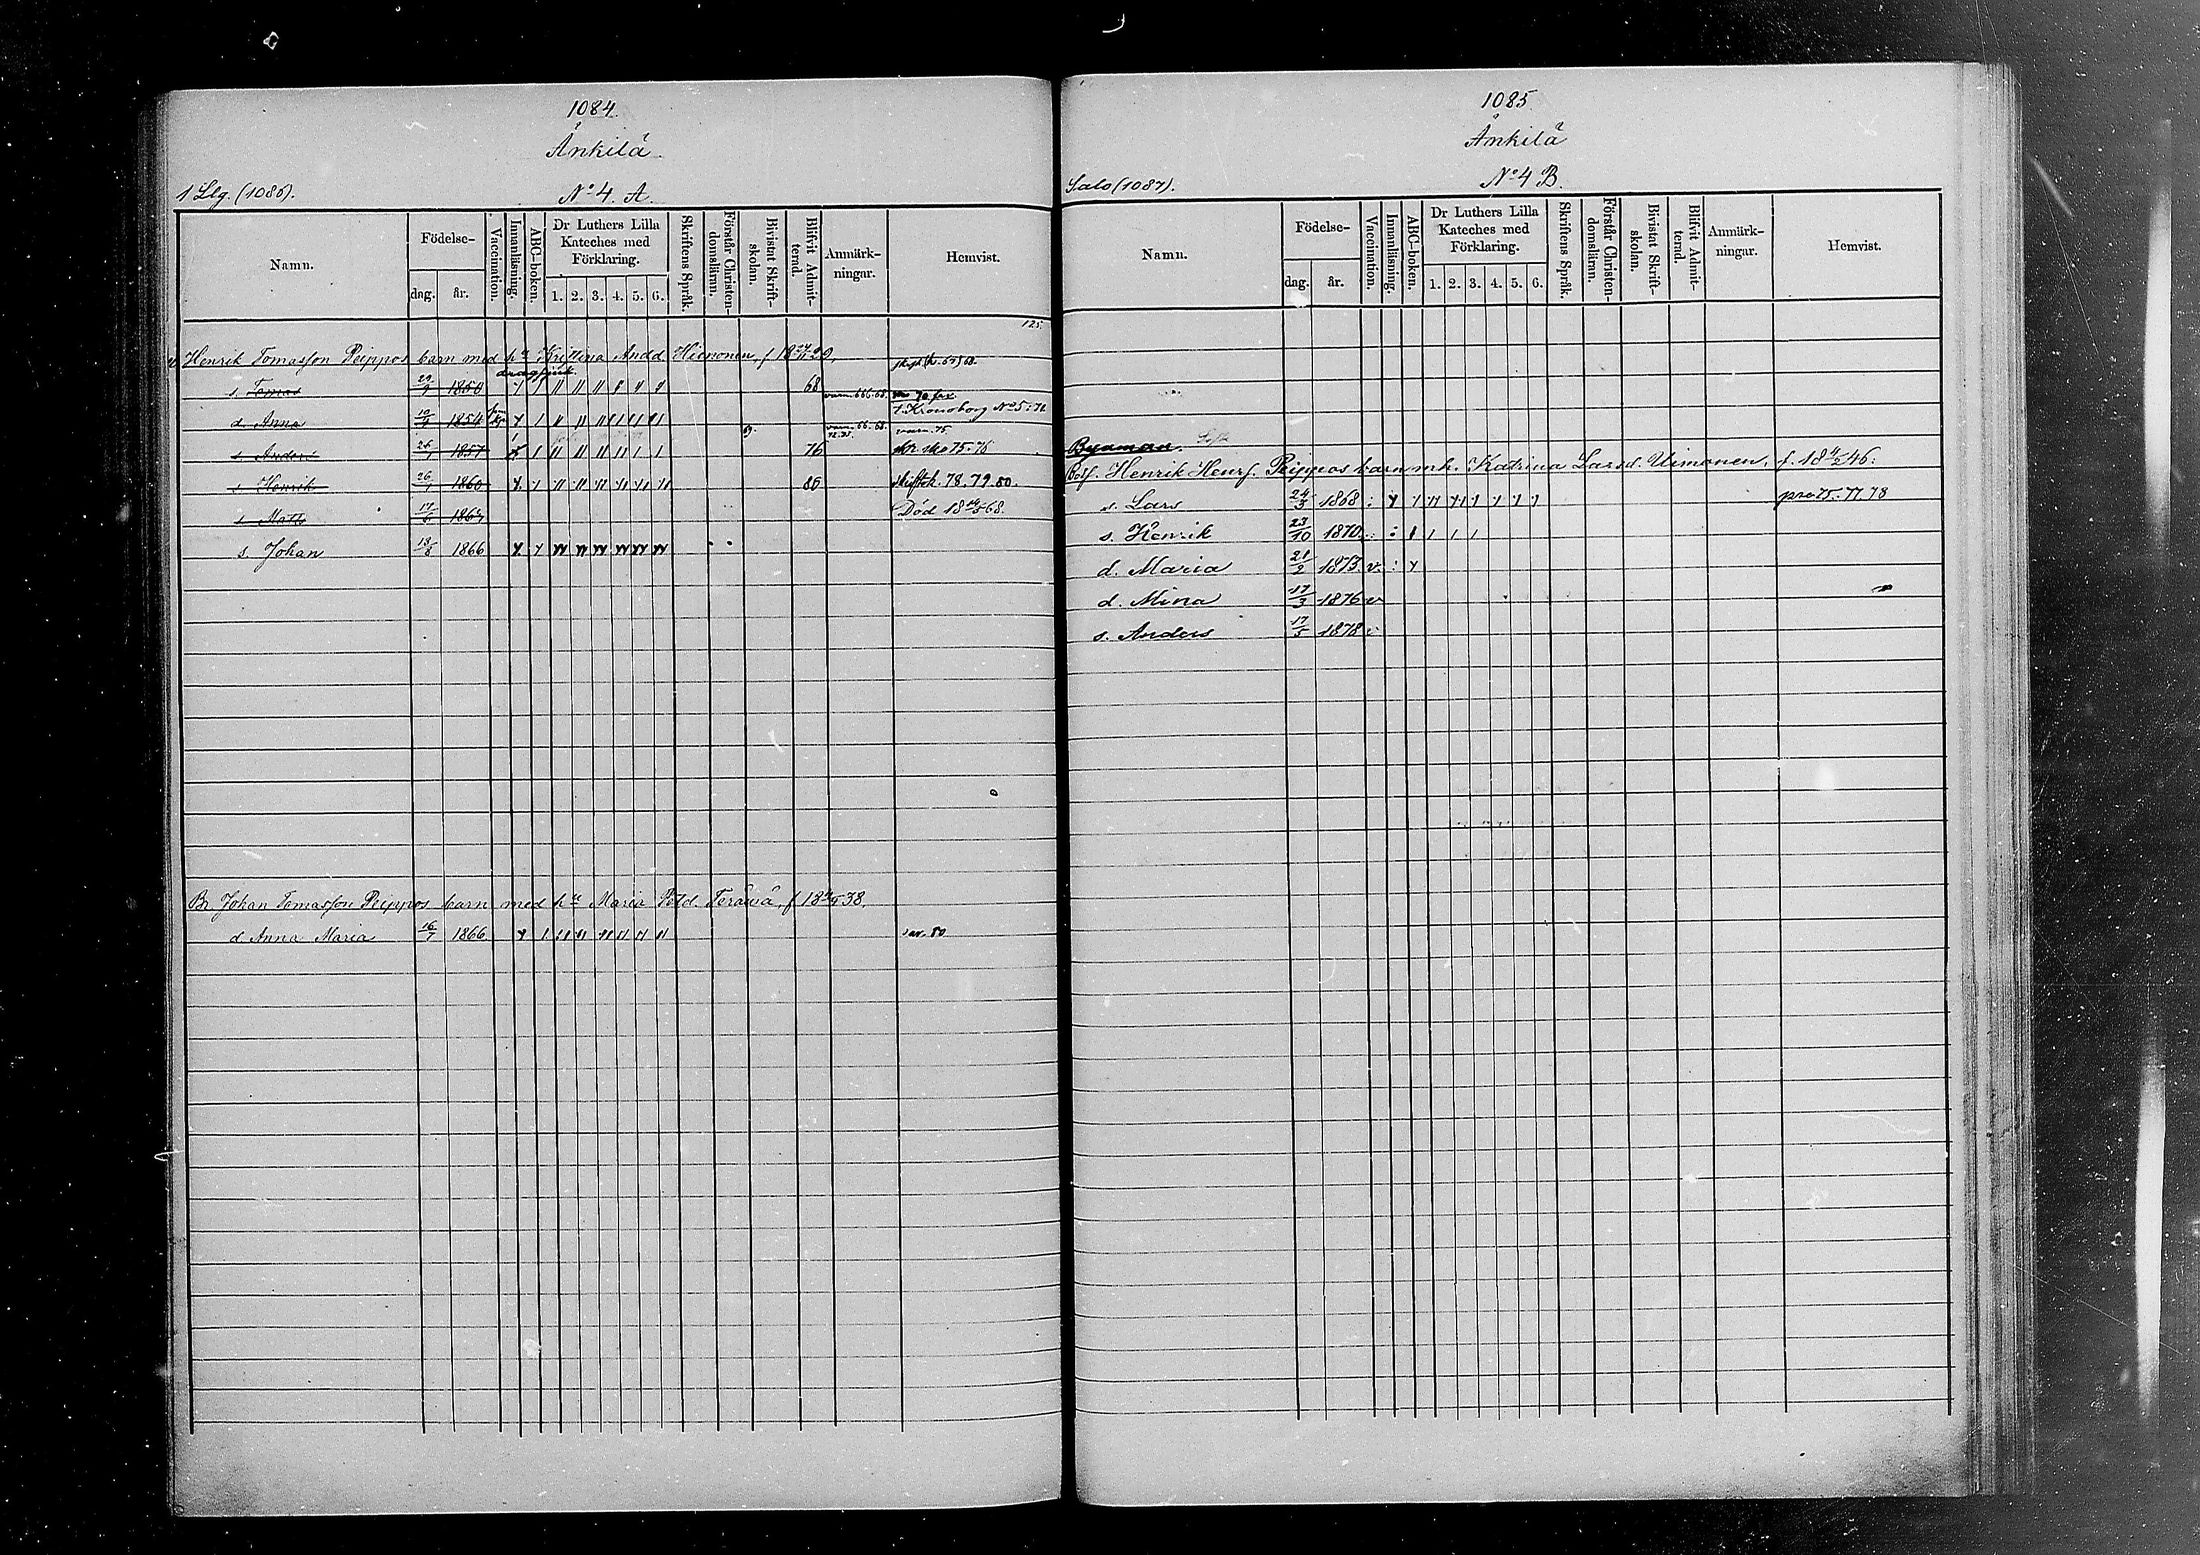 1084.
Änkilä.
1 Llg. (1086).
No 4. A.
Namn.
Födelse-
dag.
år.
Vaccination.
Innanläsning.
ABC-boken.
Dr Luthers Lilla
Kateches med
Förklaring.
1. 2. 3. 4. 5. 6.
Skriftens Språk.
Förstår Christen-
domslärnn.
Bivistat Skrift-
skolan.
Blifvit Admit-
terad.
Anmärk-
ningar.
Hemvist.
125.
Henrik Tomasson Peippos barn med hu Kristina Andd Hienonen, f 18 29.
s. Tomas 29/9 1850 68
d. Anna 1854 t. Kronoborg No 5: 71
s. Anders 26/1 1857 76 75. 76
s. Henrik 26/1 1860 80 skriftsk. 78. 79. 80.
s. Matts 17/6 1864 Död 18 68.
s. Johan 13/8 1866
Br. Johan Tomasson Peippos barn med hu Maria Petd. Teräviä, f 18 38.
d. Anna Maria 16/7 1866 80
1085
Änkilä
Salo (1087).
No 4 B.
Namn.
Födelse-
dag.
år.
Vaccination.
Innanläsning.
ABC-boken.
Dr Luthers Lilla
Kateches med
Förklaring.
1. 2. 3. 4. 5. 6.
Skriftens Språk.
Förstår Christen-
domslärnn.
Bivistat Skrift-
skolan.
Blifvit Admit-
terad
Anmärk-
ningar.
Hemvist.
Byaman.
Bolf. Henrik Henrs. Peippos barn mh. Katrina Larsd. Uimonen, f. 18 46.
s. Lars 24/3 1868 75. 77 78
s. Henrik 23/10 1870
d. Maria 21/2 1873 v.
d. Mina 17/3 1876 v
s. Anders 17/5 1878